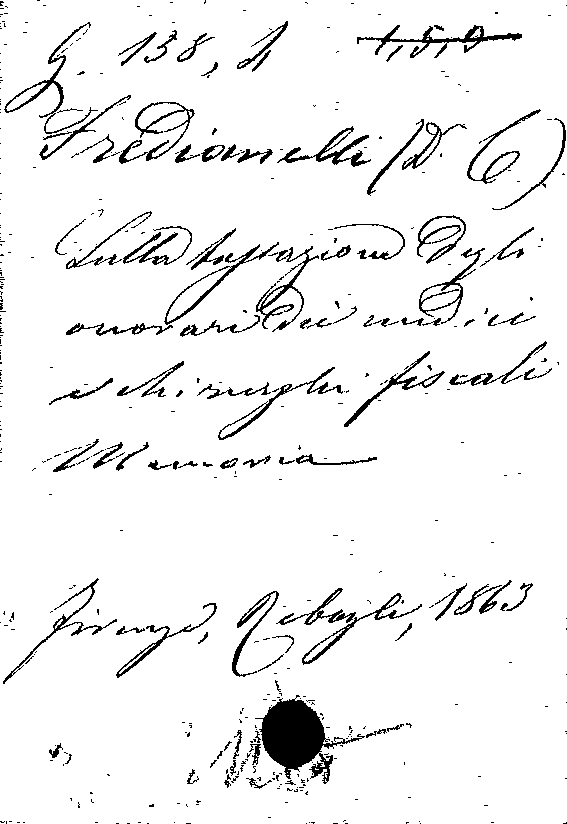 G. 138, 4 1,5,9
Fredianelli (D. C)
Sulla tassazione degli
onorari dei medici
e chirurghi fiscali
Memoria
Firenze, Rebagli, 1863